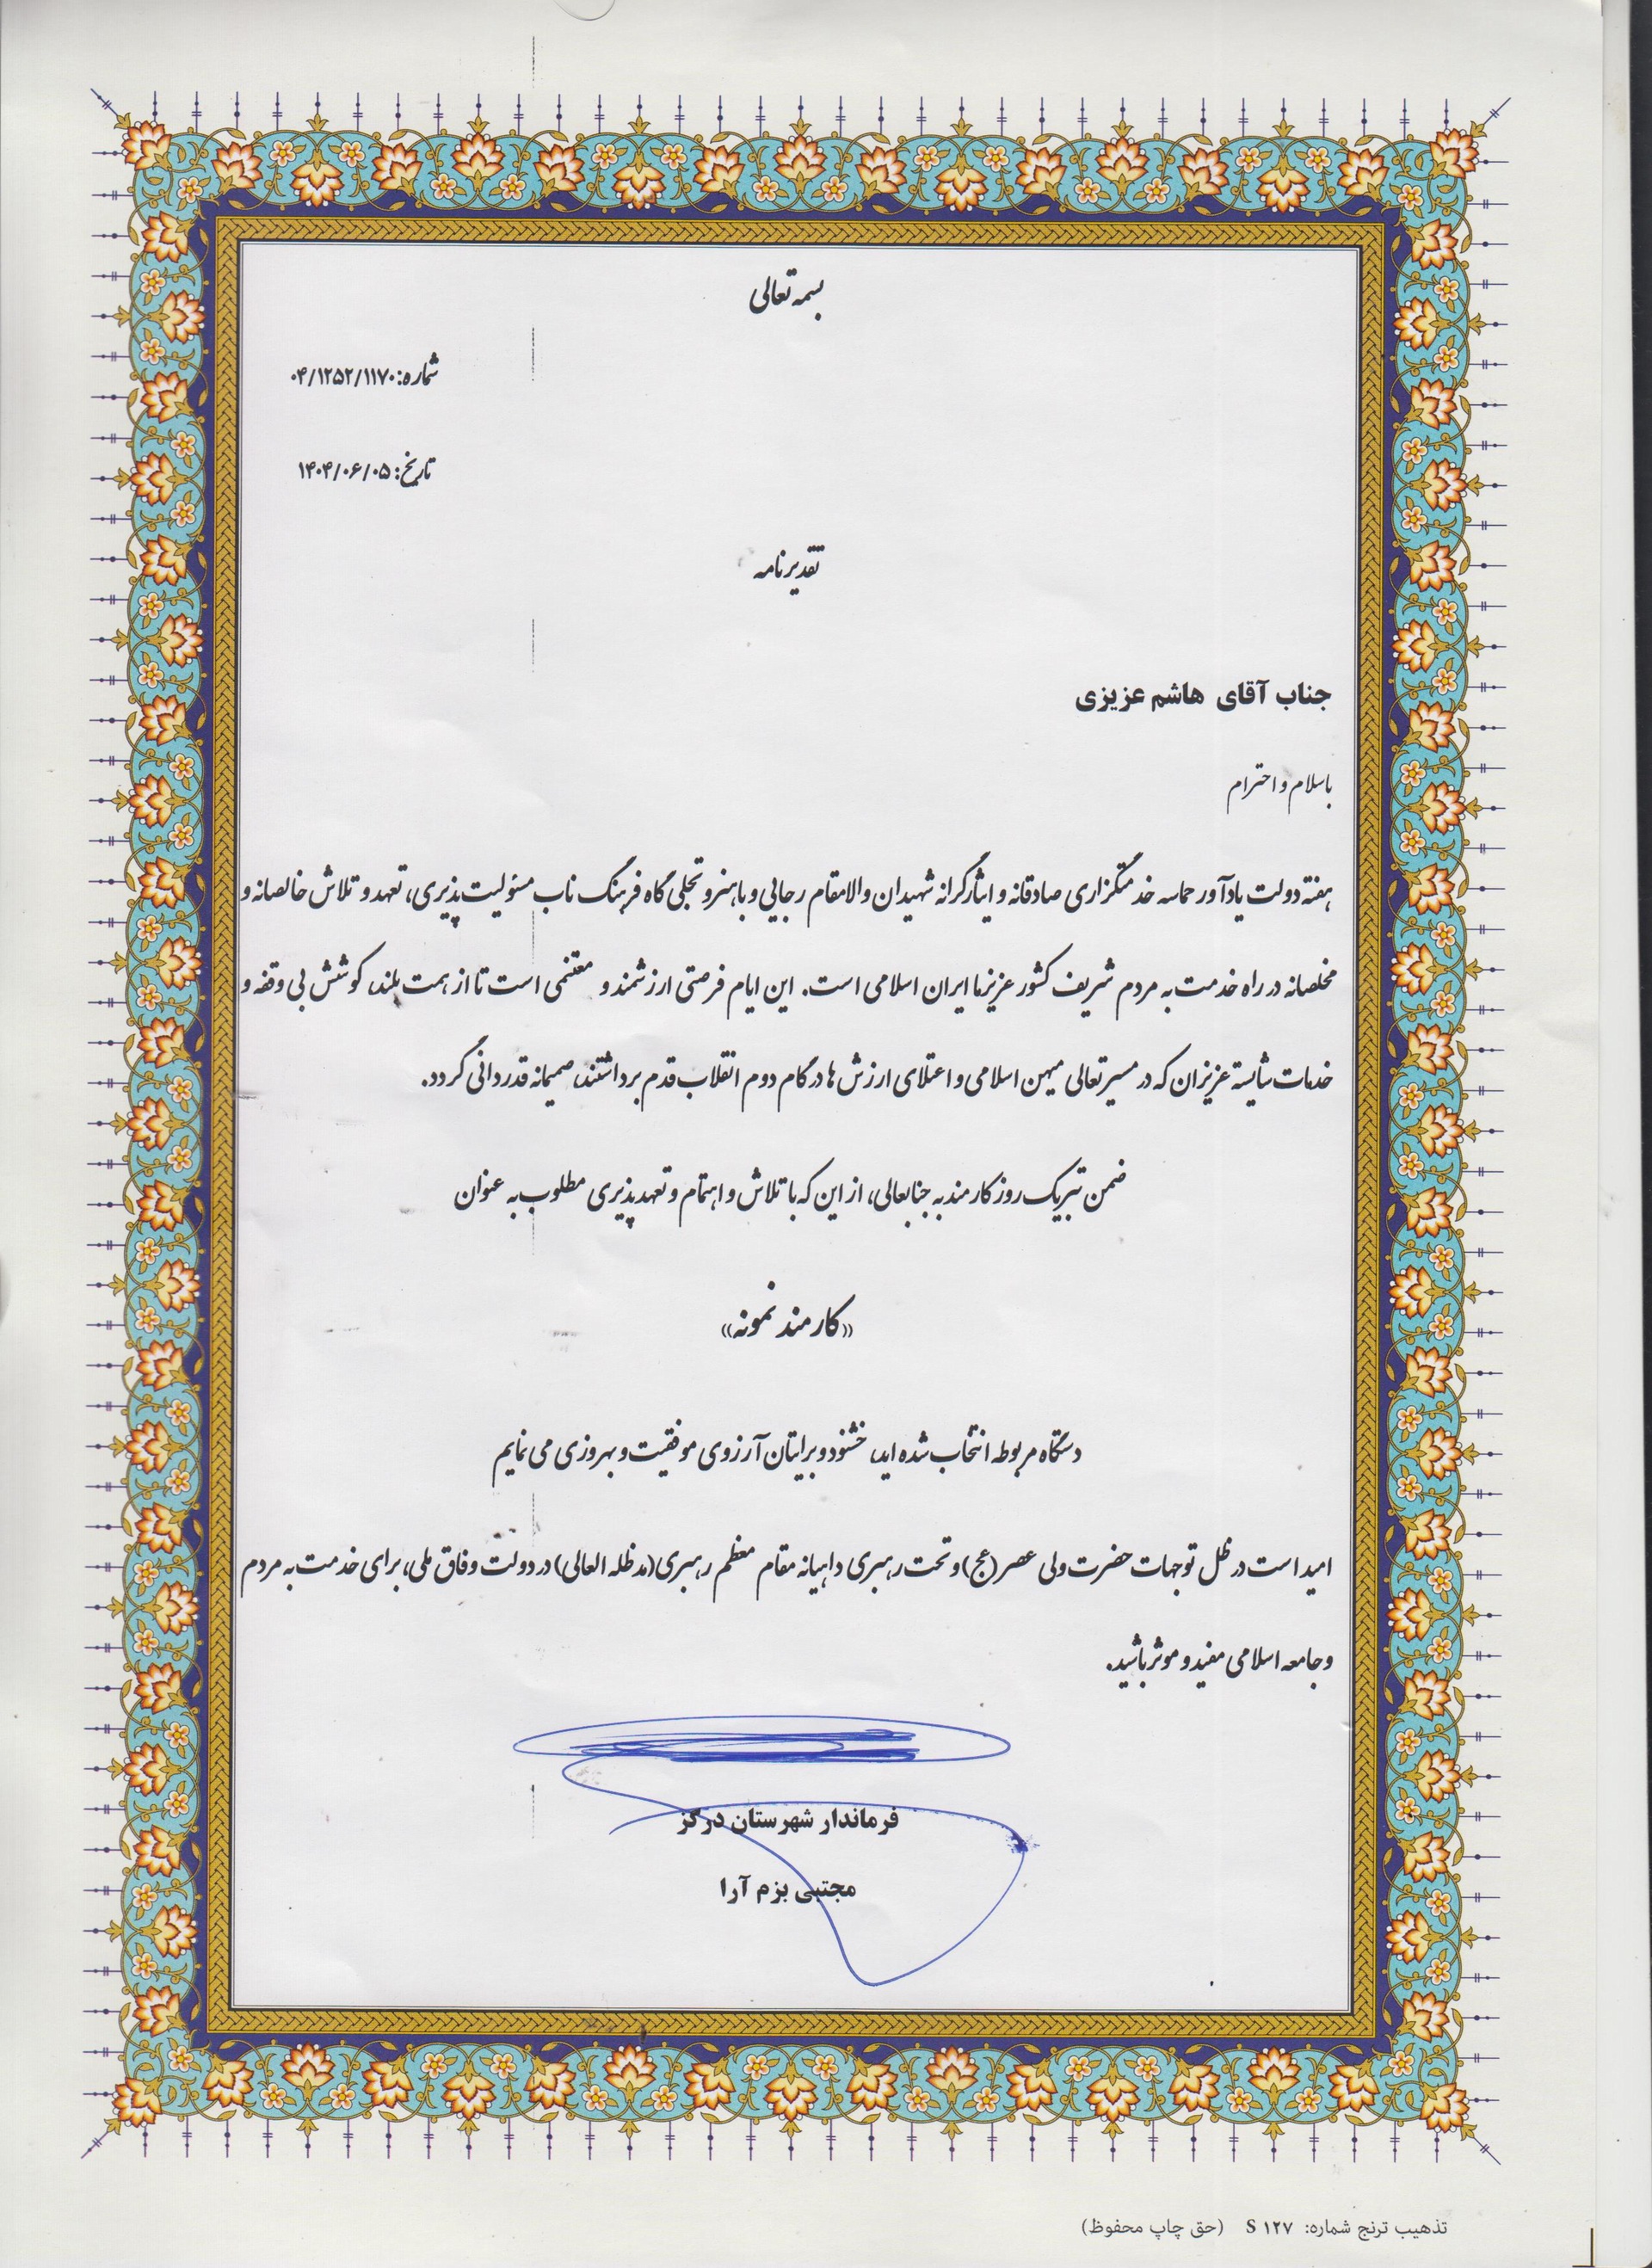 بسمه تعالی
شماره: ۰۴/۱۲۵۲/۱۱۷۰
تاریخ: ۱۴۰۴/۰۶/۰۵
تقدیرنامه
جناب آقای هاشم عزیزی
باسلام و احترام
هفته دولت یادآور حماسه خدمتگزاری صادقانه و ایثارگرانه شهیدان والامقام رجایی و باهنر و تجلی گاه فرهنگ ناب مسئولیت پذیری، تعهد و تلاش خالصانه و
مخلصانه در راه خدمت به مردم شریف کشور عزیزما ایران اسلامی است. این ایام فرصتی ارزشمند و مغتنمی است تا از همت بلند، کوشش بی وقفه و
خدمات شایسته عزیزان که در مسیر تعالی میهن اسلامی و اعتلای ارزش ها در گام دوم انقلاب قدم برداشتند، صمیمانه قدردانی گردد.
ضمن تبریک روز کارمند به جنابعالی، از این که با تلاش و اهتمام و تعهدپذیری مطلوب به عنوان
«کارمند نمونه»
دستگاه مربوطه انتخاب شده اید، خشنود و برایتان آرزوی موفقیت و بهروزی می نمایم
امید است در ظل توجهات حضرت ولی عصر(عج) و تحت رهبری داهیانه مقام معظم رهبری(مدظله العالی) در دولت وفاق ملی، برای خدمت به مردم
و جامعه اسلامی مفید و موثر باشید.
فرماندار شهرستان درگز
مجتبی بزم آرا
تذهیب ترنج شماره: S ۱۲۷ (حق چاپ محفوظ)